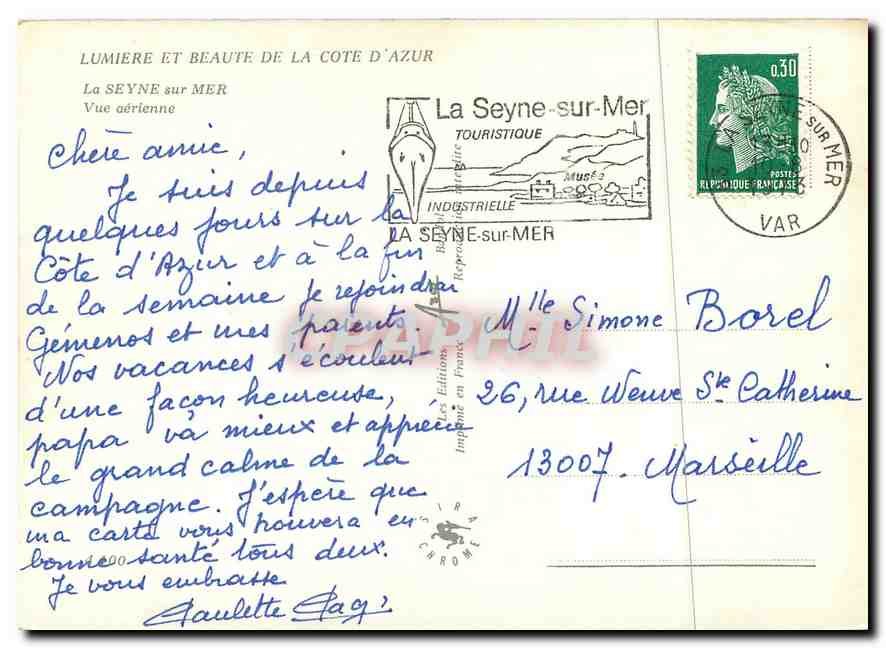 LUMIERE ET BEAUTE DE LA COTE D'AZUR
La SEYNE sur MER
Vue aérienne
Chère amie,
Je suis depuis
quelques jours sur la
Côte d'Azur et à la fin
de la semaine je rejoindrai
Gémenos et mes parents.
Nos vacances s'écoulent
d'une façon heureuse,
papa va mieux et apprécie
le grand calme de la
campagne. J'espère que
ma carte vous trouvera en
bonne santé tous deux.
Je vous embrasse
Paulette
La Seyne-sur-Mer
TOURISTIQUE
Musée
INDUSTRIELLE
LA SEYNE-sur-MER
0,30
POSTES
REPUBLIQUE FRANÇAISE
LA SEYNE sur MER
1973
VAR
Les Editions
Reproduction interdite
Imprimé en France
SIRA
CHROME
PAPHIL
Mlle Simone Borel
26, rue Neuve Ste Catherine
13007. Marseille